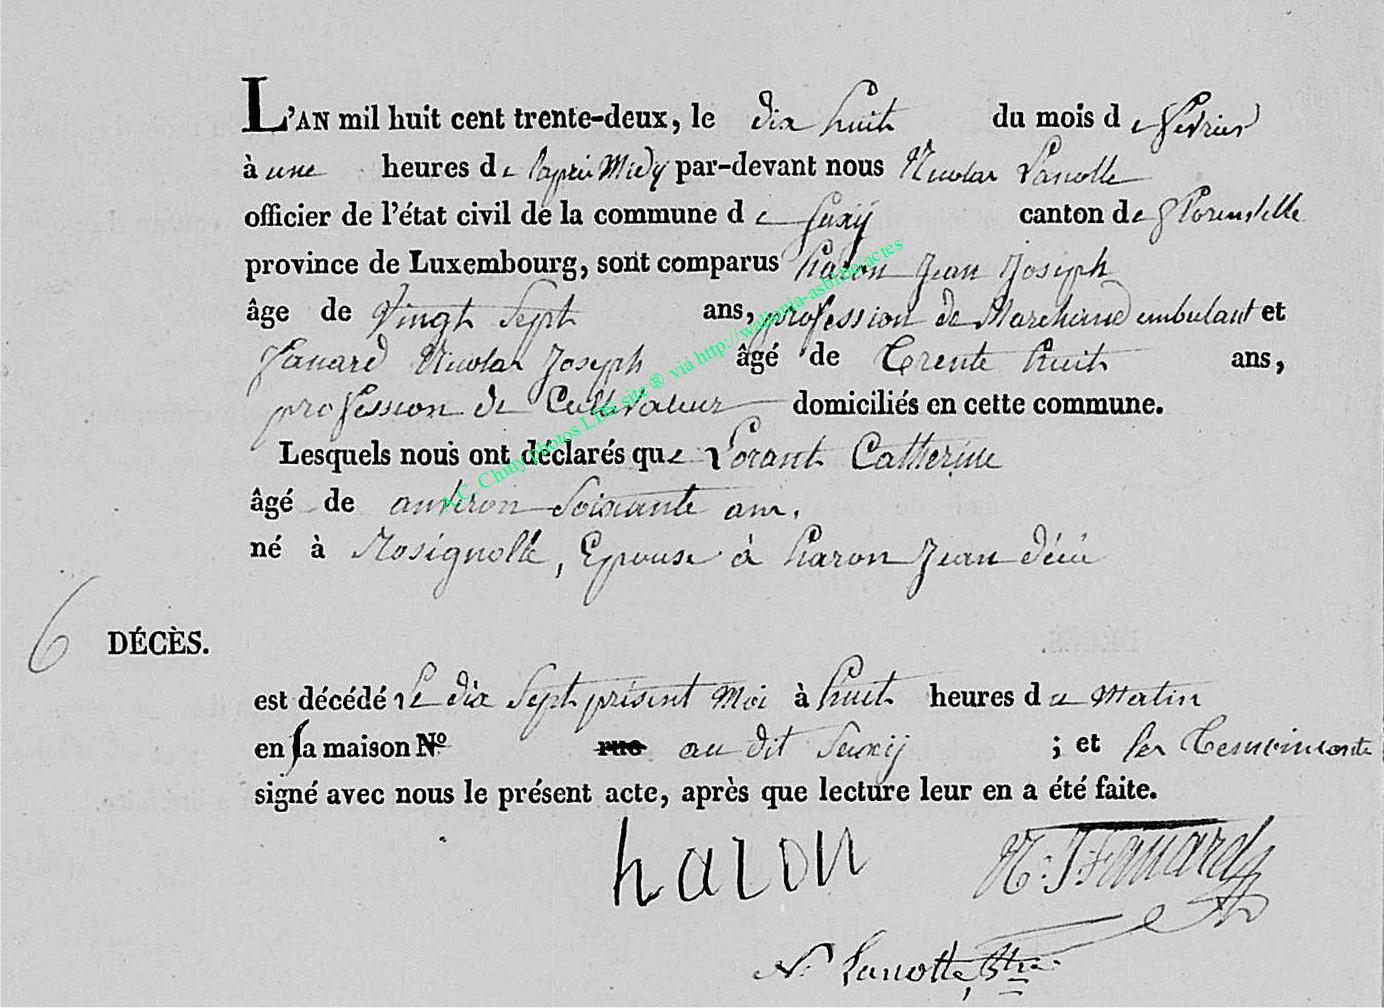 L'AN mil huit cent trente-deux, le dix huit du mois de fevrier
à une heures de lapres Midy par-devant nous Nicolas Lanotte
officier de l'état civil de la commune de Suxÿ canton de florenville
province de Luxembourg, sont comparus haron Jean Joseph
âge de Vingt Sept ans, profession de Marchand embulant et
fanard Nicolas Joseph âgé de Trente huit ans,
profession de Cultivateur domiciliés en cette commune.
Lesquels nous ont déclarés que Lorant Catherine
âgé de anviron Soixante ans,
né à Rosignolle, Epouse à haron Jean
6 DÉCÈS.
est décédé le dix Sept présent Moi à huit heures du Matin
en sa maison Nº rue au dit Suxÿ ; et les temoins onts
signé avec nous le présent acte, après que lecture leur en a été faite.
haron N: J: Fanard
N. Lanotte,
A.C. Chiny photos LDS site ® via http://wallonia-asbl.be/actes